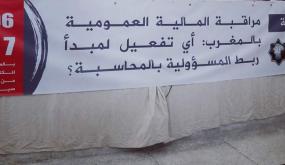 مراقبة المالية العمومية
بالمغرب: أي تفعيل لمبدأ
ربط المسؤولية بالمحاسبة؟
6
7